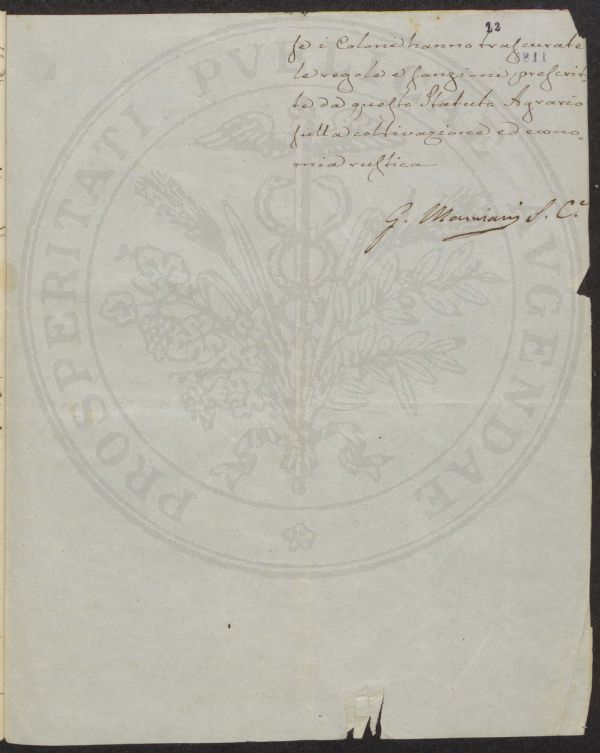 12
1811
se i Coloni hanno trascurate
le regole e sanzioni prescrit-
te da questo Statuto Agrario
sulla coltivazione ed econo-
mia rustica
G. Mamiani S. C.e
PROSPERITATI PVBLICAE AVGENDAE